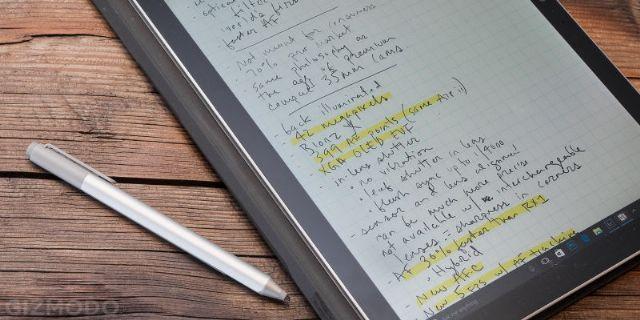 optical
filter
world's first
faster AF
- Not meant for consumers
- 70% pro market
- same philosophy as
the age of premium
compact 35mm cams
- back illuminated
- 42 megapixels
- Bionz X
- 399 AF points (same A7R ii)
- XGA OLED EVF
- in-lens shutter
- no vibration
- leaf shutter in lens
- flash sync up to 1/4000
- sensor and lens aligned
can be much more precise
not available w/ interchangeable
lenses = sharpness in corners
- AF 30% faster than RX1
- Hybrid
- New AFC
- New w/ AF tracking
GIZMODO